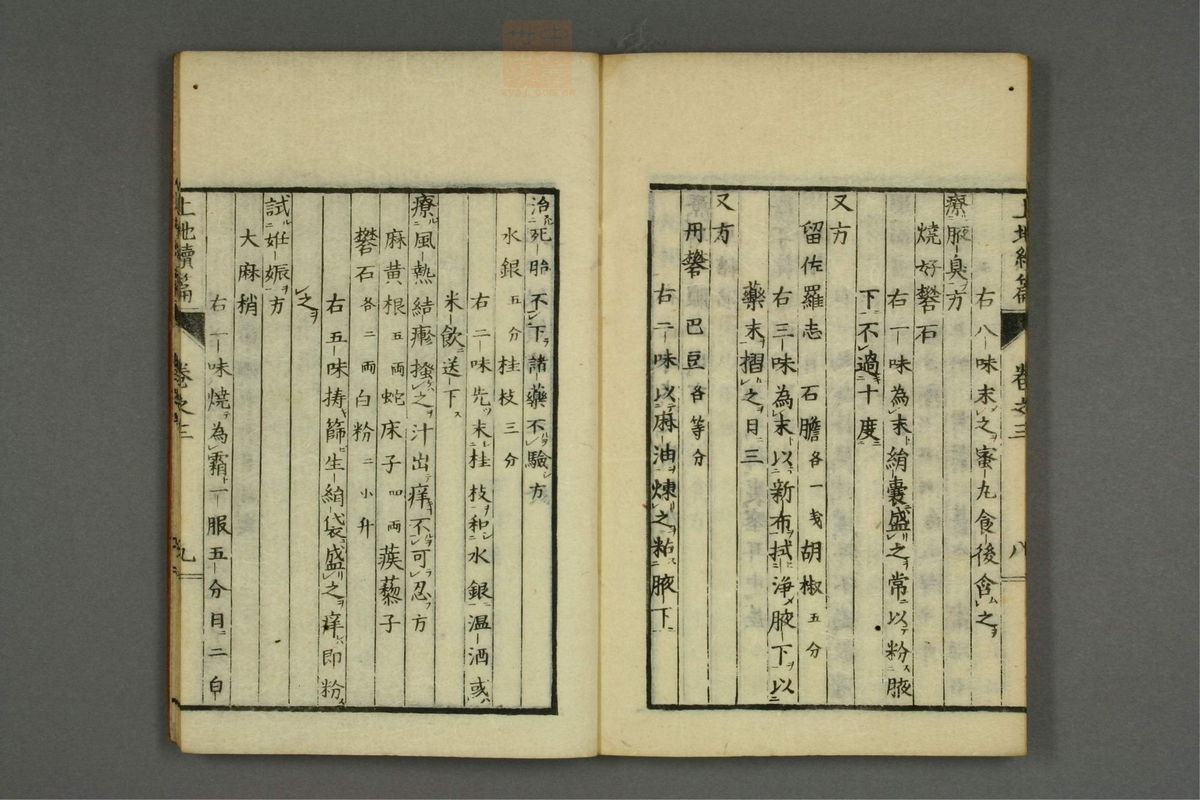 右八味末之蜜丸食後含之
療腋臭方
燒好礬石
右一味為末絹囊盛之常以粉腋
下不過十度
又方
留佐羅志 石膽各一戔胡椒五分
右三味為末以新布拭淨腋下以
藥末摺之日三
又方
丹礬 巴豆各等分
右二味以麻油煉之粘腋下
卷之三
八
治死胎不下諸藥不驗方
水銀五分桂枝三分
右二味先末桂枝和水銀温酒或
米飲送下
療風熱結𤺋搔之汁出痒不可忍方
麻黄根五兩蛇床子四兩蒺藜子
礬石各二兩白粉二小升
右五味擣篩生絹袋盛之痒即粉
之
試妊娠方
大麻稍
右一味燒為霜一服五分日二白
上池續篇
卷之三
九